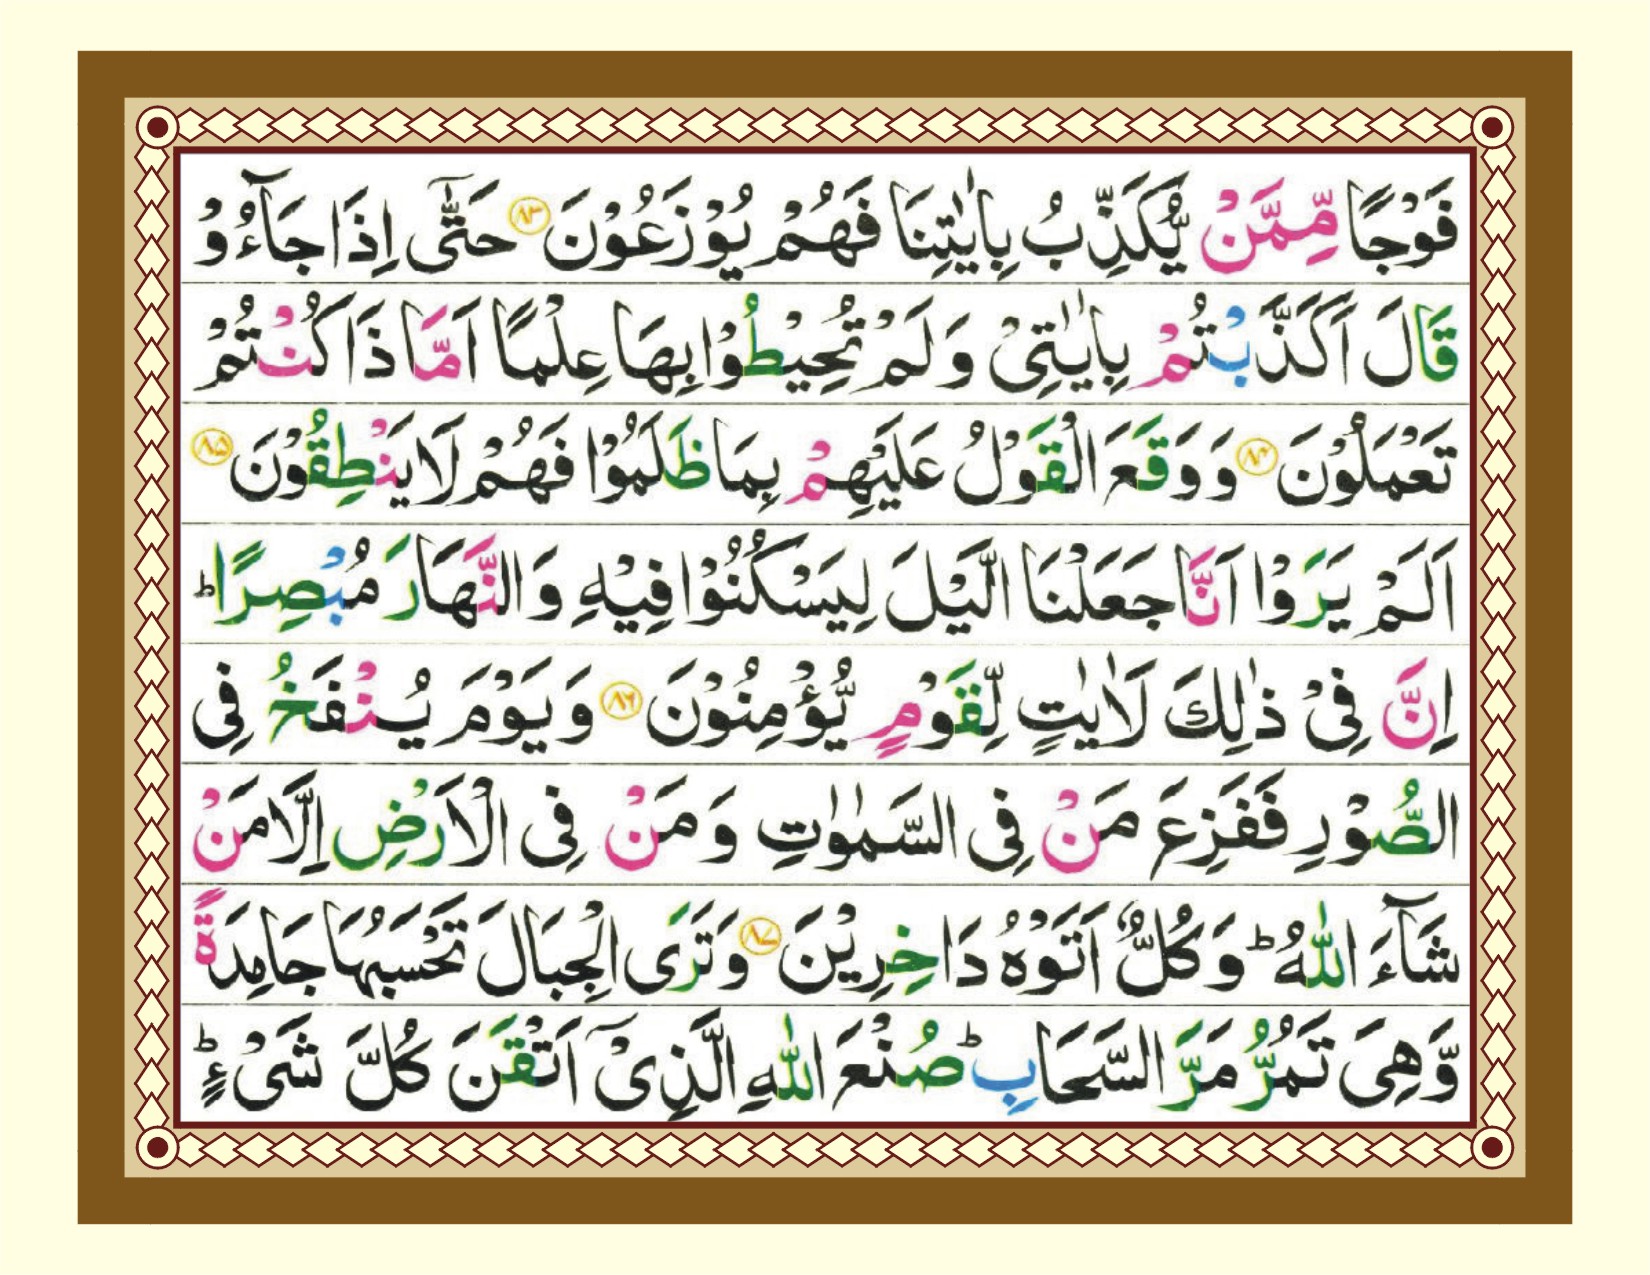 فَوْجًا مِّمَّنْ يُّكَذِّبُ بِاٰيٰتِنَا فَهُمْ يُوْزَعُوْنَ ۝۸۳ حَتّٰۤى اِذَا جَآءُوْ
قَالَ اَكَذَّبْتُمْ بِاٰيٰتِىْ وَلَمْ تُحِيْطُوْا بِهَا عِلْمًا اَمَّا ذَا كُنْتُمْ
تَعْمَلُوْنَ ۝۸۴ وَوَقَعَ الْقَوْلُ عَلَيْهِمْ بِمَا ظَلَمُوْا فَهُمْ لَا يَنْطِقُوْنَ ۝۸۵
اَلَمْ يَرَوْا اَنَّا جَعَلْنَا الَّيْلَ لِيَسْكُنُوْا فِيْهِ وَالنَّهَارَ مُبْصِرًا ؕ
اِنَّ فِىْ ذٰلِكَ لَاٰيٰتٍ لِّقَوْمٍ يُّؤْمِنُوْنَ ۝۸۶ وَيَوْمَ يُنْفَخُ فِى
الصُّوْرِ فَفَزِعَ مَنْ فِى السَّمٰوٰتِ وَمَنْ فِى الْاَرْضِ اِلَّا مَنْ
شَآءَ اللّٰهُ ؕ وَكُلٌّ اَتَوْهُ دَاخِرِيْنَ ۝۸۷ وَتَرَى الْجِبَالَ تَحْسَبُهَا جَامِدَةً
وَّهِىَ تَمُرُّ مَرَّ السَّحَابِ ؕ صُنْعَ اللّٰهِ الَّذِىْۤ اَتْقَنَ كُلَّ شَىْءٍ ؕ